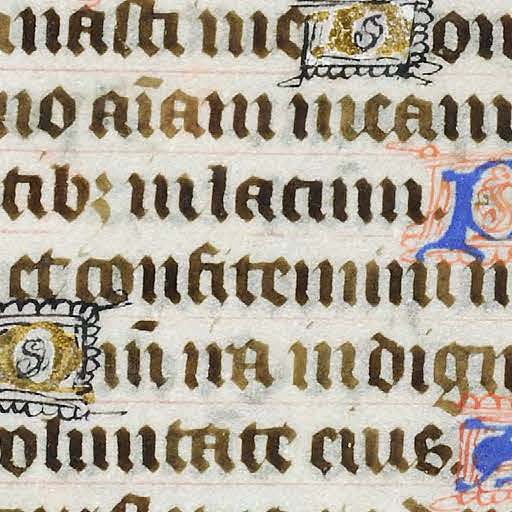 anasti me Dom
no aīam meam
tib; in lacum. P
et confitemini m
Qm̄ ira indign
oluntate eius.